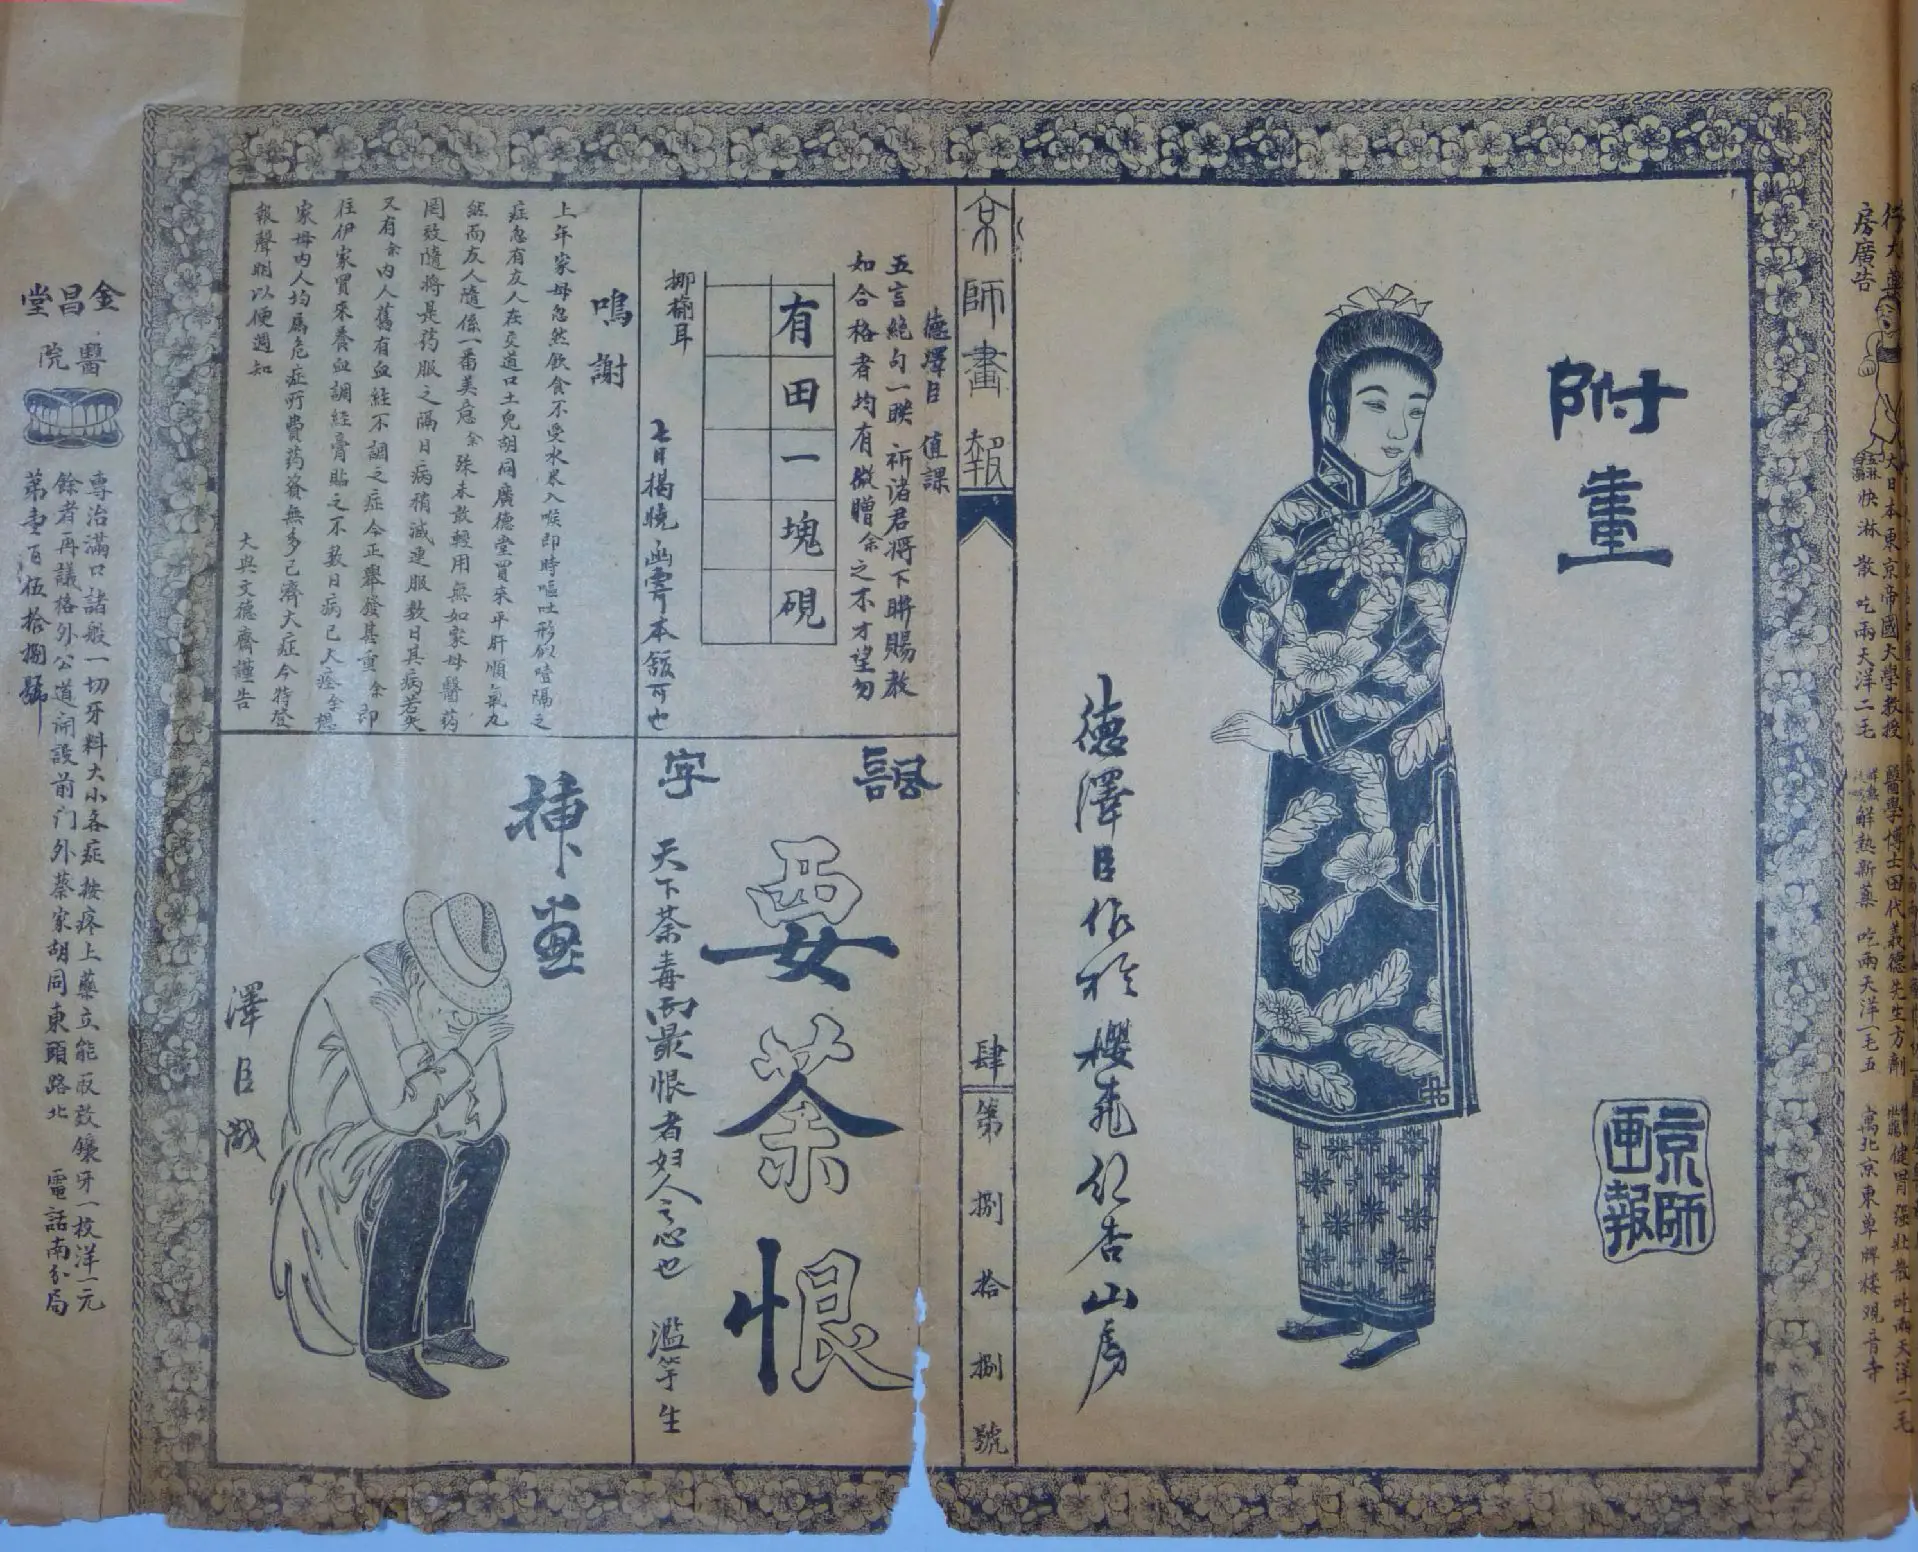 附畫
德澤臣作於櫻
仁杏山房
京師
畫報
京師畫報
肆
第捌拾捌號
德澤臣 值課
五言絕句一联 祈諸君將下联賜教
如合格者均有微贈余之不才望勿
揶揄耳
有田一塊硯
七日揭曉 函寄本館可也
鳴謝
上年家母忽然飲食不受水米入喉即時嘔吐形似噎隔之
症急有友人在交道口土兒胡同廣德堂買來平肝順氣丸
然而友人隨係一番美意余殊未敢輕用無如家母醫药
罔效隨將是药服之隔日病稍減連服数日其病若失
又有余內人舊有血経不調之症今正舉發甚重余即
往伊家買來養血調経膏貼之不数日病已大痊余想
家母內人均爲危症所費药資無多已濟大症今特登
報聲明以便週知
大興文德齋謹告
諷字
要茶恨
天下茶毒而最恨者妇人之心也 濫竽生
插画
澤臣戯
金昌堂
醫院
專治滿口諸般一切牙料大小各症按疼上藥立能取效鑲牙一枚洋一元
餘者再議格外公道開設前门外蔡家胡同東頭路北 電話南分局
第壹百伍拾捌號
房廣告
大日本東京帝國大學教授 醫學博士田代義德先生方劑
快淋散 吃兩天洋二毛
解熱新藥 吃兩天洋一毛五
健胃強壯散吃兩天洋二毛
寓北京東單牌楼观音寺